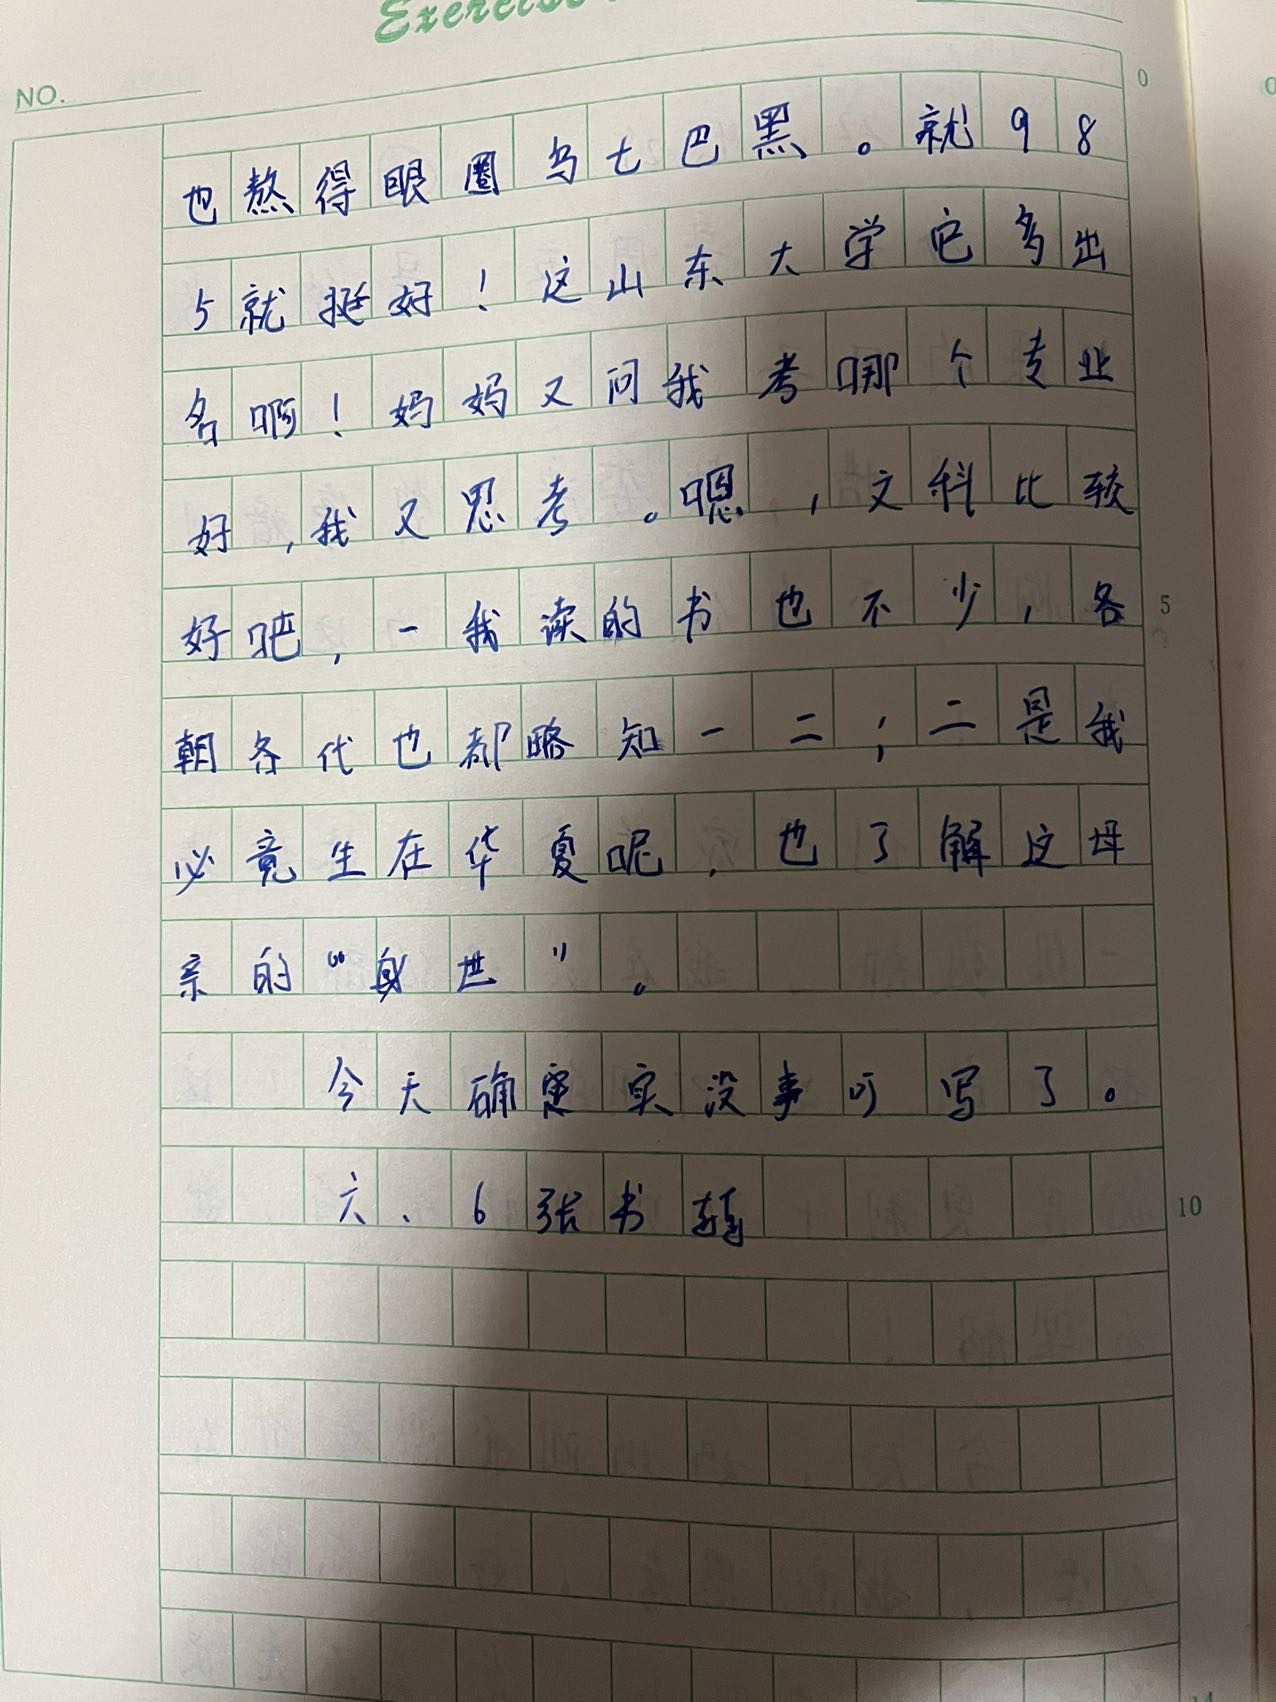 Exercise
NO.
0
也熬得眼圈乌七巴黑。就98
5就挺好！这山东大学它多出
名啊！妈妈又问我考哪个专业
好，我又思考。嗯，文科比较
好吧，一我读的书也不少，各
5
朝各代也都略知一二；二是我
必竟生在华夏呢，也了解这母
亲的“身世”。
今天确实没事可写了。
六、6张书
10